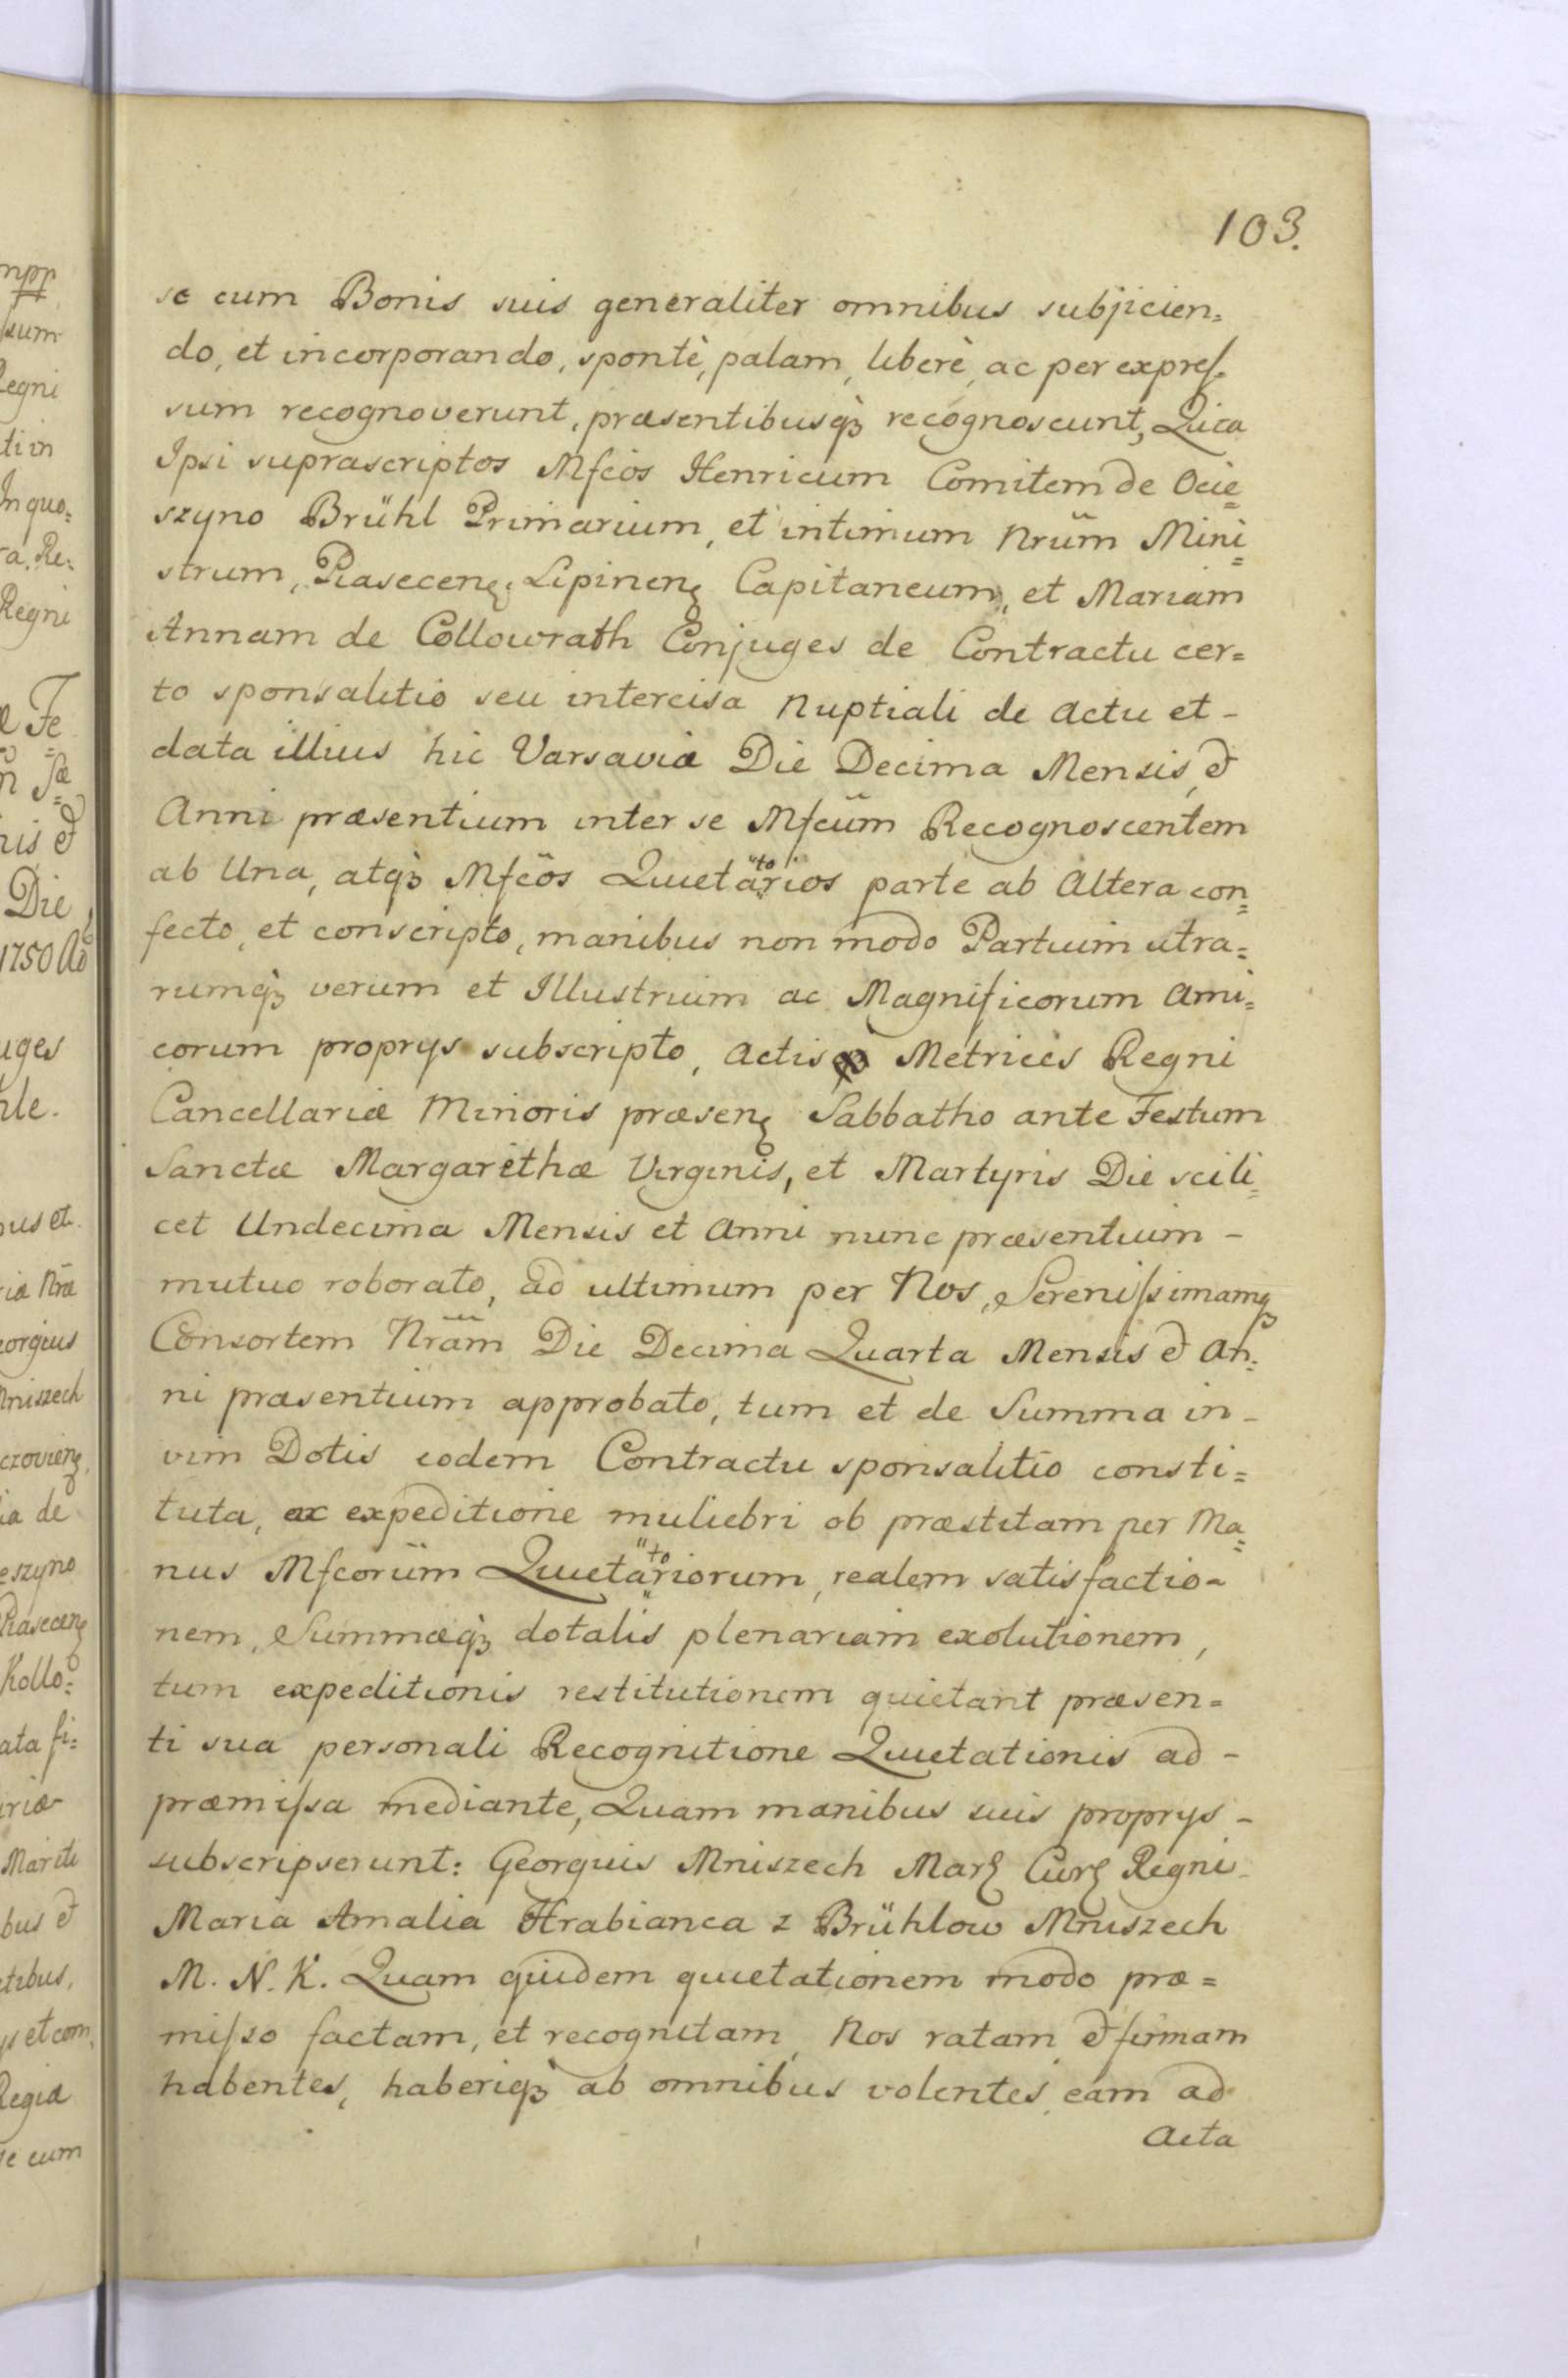 103.
se cum Bonis suis generaliter omnibus subjicien=
do, et incorporando, spontè, palam, liberè, ac per expres=
sum recognoverunt, præsentibusq3 recognoscunt, Quia
Ipsi suprascriptos Mfcos Henricum Comitem de Ocie=
szyno Brühl Primarium, et intimum Nrum Mini=
strum, Piaseceng, Lipineng Capitaneum, et Mariam
Annam de Collowrath Conjuges de Contractu cer=
to sponsalitio seu intercisa Nuptiali de Actu et -
data illius hic Varsaviæ Die Decima Mensis, et
Anni præsentium inter se Mfcum Recognoscentem
ab Una, atq3 Mfcos Quietatorios parte ab Altera con=
fecto, et conscripto, manibus non modo Partium utra=
rumq3 verum et Illustrium ac Magnificorum Ami=
corum proprys subscripto, Actis Metrices Regni
Cancellariæ Minoris præseng Sabbatho ante Festum
Sanctæ Margarethæ Virginis, et Martyris Die scili=
cet Undecima Mensis et Anni nunc præsentium -
mutuo roborato, ad ultimum per Nos, Serenissimamq
Consortem Nram Die Decima Quarta Mensis et An=
ni præsentium approbato, tum et de Summa in -
vim Dotis eodem Contractu sponsalitio consti=
tuta, ac expeditione muliebri ob præstitam per Ma=
nus Mfcorum Quietatoriorum, realem satisfactio=
nem, Summæq3 dotalis plenariam exolutionem,
tum expeditionis restitutionem quietant præsen=
ti sua personali Recognitione Quietationis ad -
præmissa mediante, Quam manibus suis proprys -
subscripserunt: Georgius Mniszech Mar. Cur. Regni
Maria Amalia Hrabianca z Brühlow Mniszech
M. N. K. Quam quidem quietationem modo præ=
misso factam, et recognitam, Nos ratam et firmam
habentes, haberiq3 ab omnibus volentes, eam ad
Acta